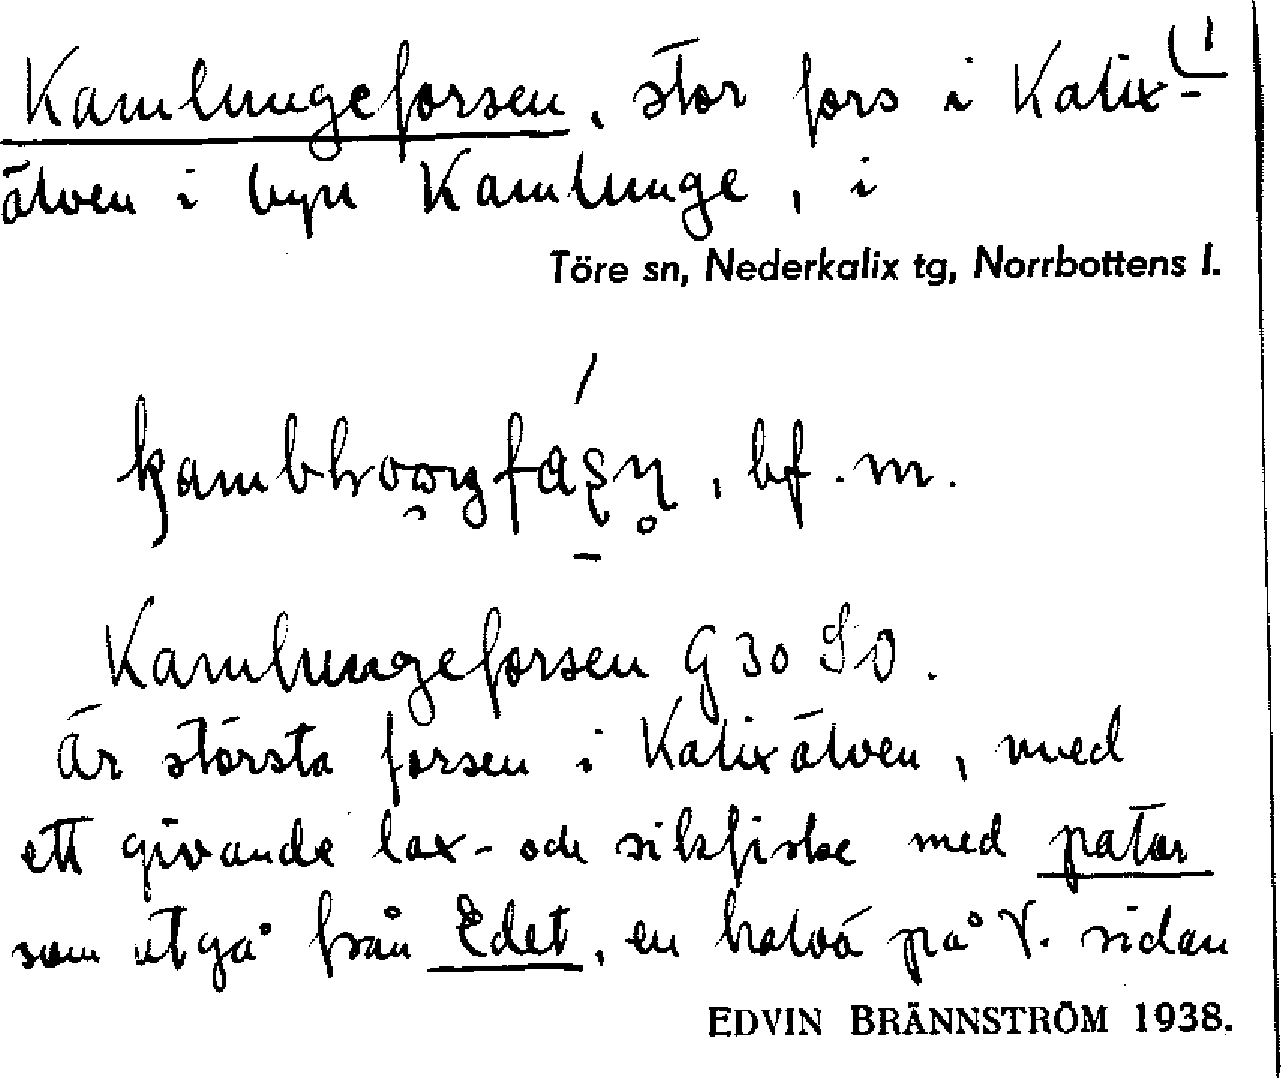 Kamlungeforsen, stor fors i Kalix- (1
älven i byn Kamlunge, i
Töre sn, Nederkalix tg, Norrbottens l.
, bf. m.
Kamlungeforsen G 30 SO.
Är största forsen i Kalixälven, med
ett givande lax- och sikfiske med patar
som utgå från Edet, en halvö på V. sidan
EDVIN BRÄNNSTRÖM 1938.